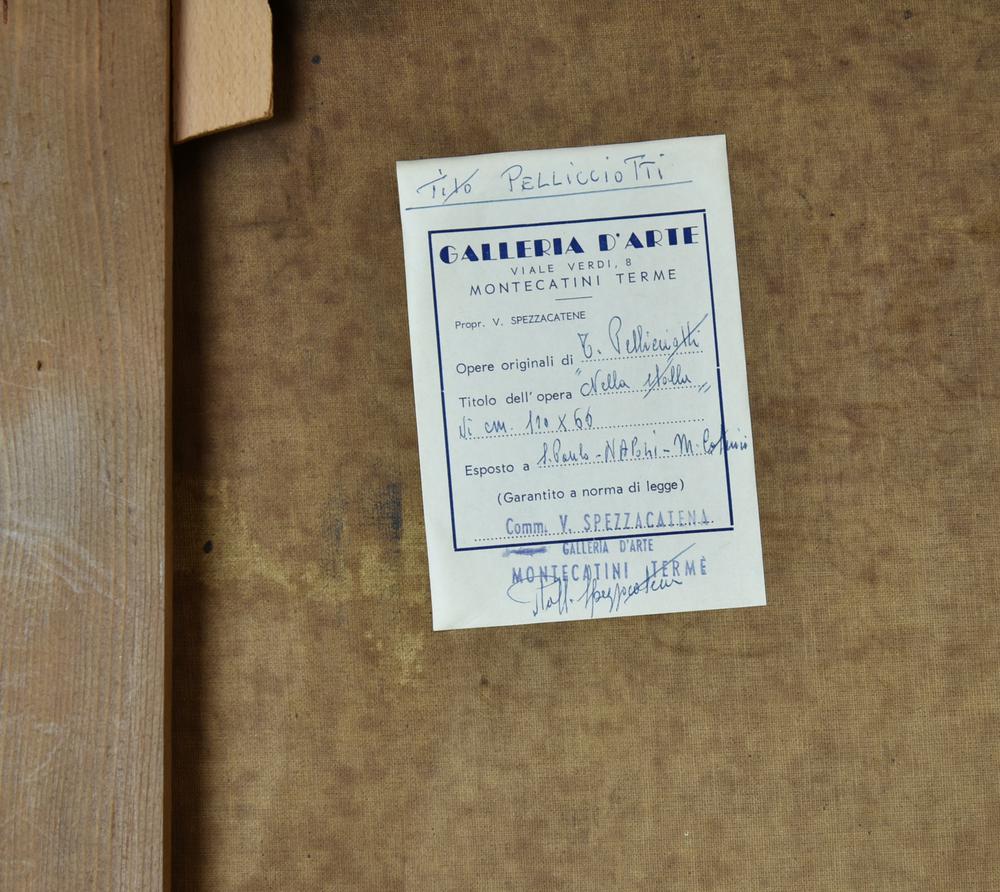 Tito PELLICCIOTTI
GALLERIA D'ARTE
VIALE VERDI, 8
MONTECATINI TERME
Propr. V. SPEZZACATENE
Opere originali di T. Pellicciotti
Titolo dell'opera "Nella stalla"
di cm. 110 x 66
Esposto a S. Paulo - NAPoli - M. Catini
(Garantito a norma di legge)
Comm. V. SPEZZACATENA
GALLERIA D'ARTE
MONTECATINI TERME